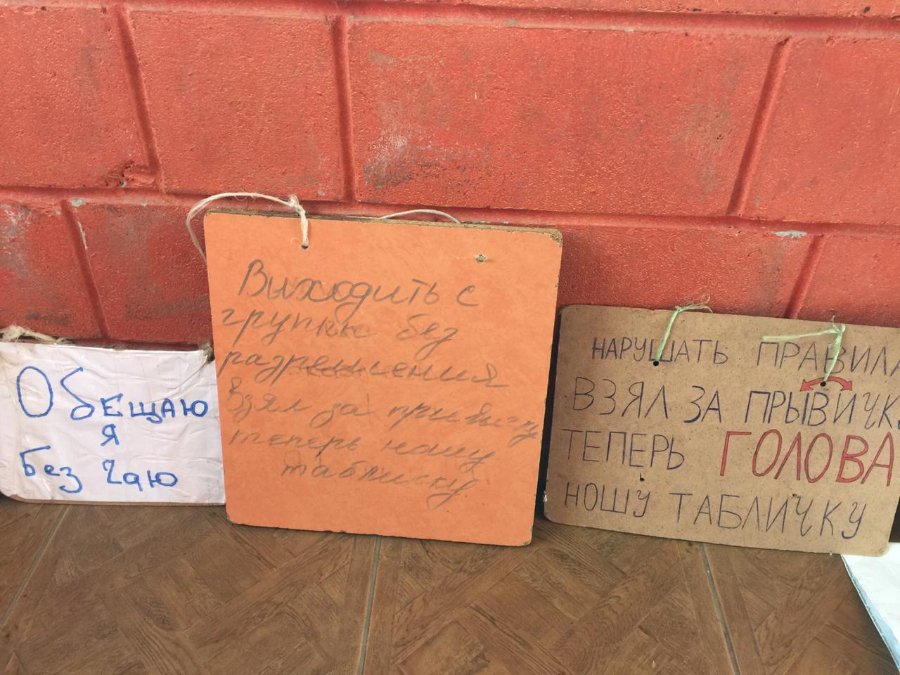 Обещаю
я
Без чаю
Виходить с
групы без
разрешения
взял за привычку
теперь ношу
табличку
НАРУШАТЬ ПРАВИЛА
ВЗЯЛ ЗА ПРЫВИЧКУ
ТЕПЕРЬ ГОЛОВА
НОШУ ТАБЛИЧКУ